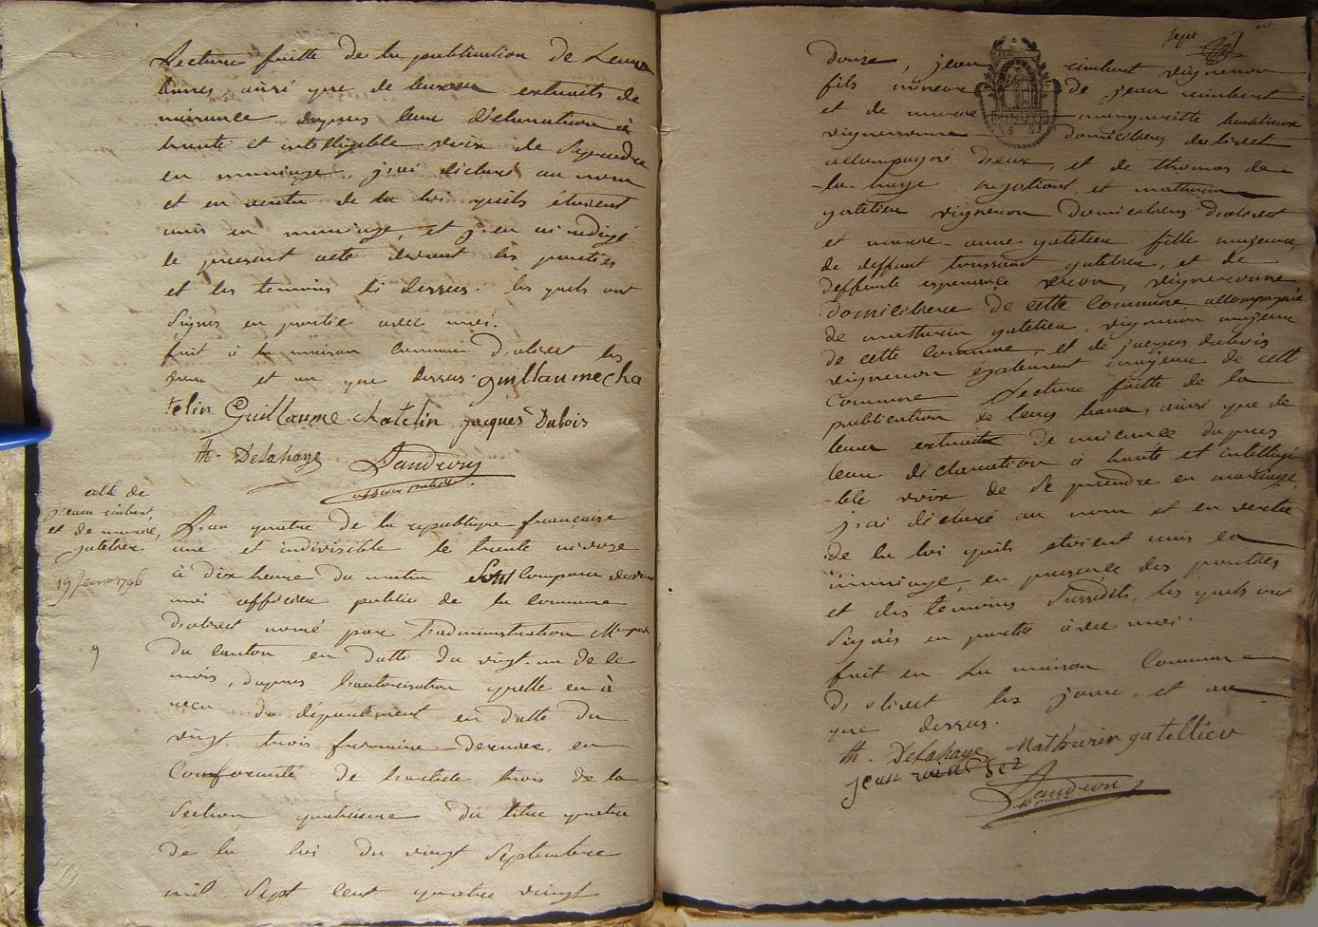 Lecture faitte de la publication de Leurs
bannes, ainsi que de leurs extraits de
naissance dapres leur déclaration à
haute et intelligible voix de se prendre
en mariage, j'ai déclaré au nom
et en vertu de la loi quils étoient
unis en mariage, et j'en ai redigé
le present acte devant les parties
et les temoins si dessus. les quels ont
signés en partie avec moi.
fait à la maison commune d'olivet les
jour et an que dessus. guillaume cha
telin Guillaume chatelin jacques Dubois
th. Delahaye Dandrou
officier public
acte de
jean rimbert,
et de marie,
gatelier
19 Janv. 1796
9
L'an quatre de la republique francaise
une et indivisible le trente nivose
à dix heure du matin Sont comparu devant
moi officier public de la commune
dolivet nomé pare l'administration
du canton en datte du vingt-un de ce
mois, dapres l'autorisation quelle en à
recu du département en datte du
vingt trois frimaire dernier, en
Conformité de l'article trois de la
Section quatrieme du titre quatre
de la loi du vingt Septembre
mil Sept cent quatre vingt
douze, jean rimbert vigneron
fils mineur de jean rimbert
et de marie margueritte
vigneronne domiciliers dolivet
accompagné deux, et de thomas de
la haye negotiant, et mathurin
gatelier vigneron domiciliers dolivet
et marie-anne gatelier fille majeure
de deffunt toussaint gatelier, et de
deffunte vigneronne
domiciliere de cette Commune accompagnée
de mathurin gatelier, vigneron majeure
de cette commune, et de jacques dubois
vigneron egalement majeur de cette
Commune Lecture faitte de la
publication de leurs bans, ainsi que de
leurs extraits de naissance dapres
leur declaration à haute et intelligi
-ble voix de se prendre en mariage,
j'ai déclaré au nom et en vertu
de la loi quils étoient unis en
mariage, en presence des parties
et des temoins Sussdits, les quels ont
Signés en partie avec moi.
fait en la maison Commune
dolivet les jour, et an
que dessus.
th. Delahaye Mathurin gatellier
jean
Dandrou